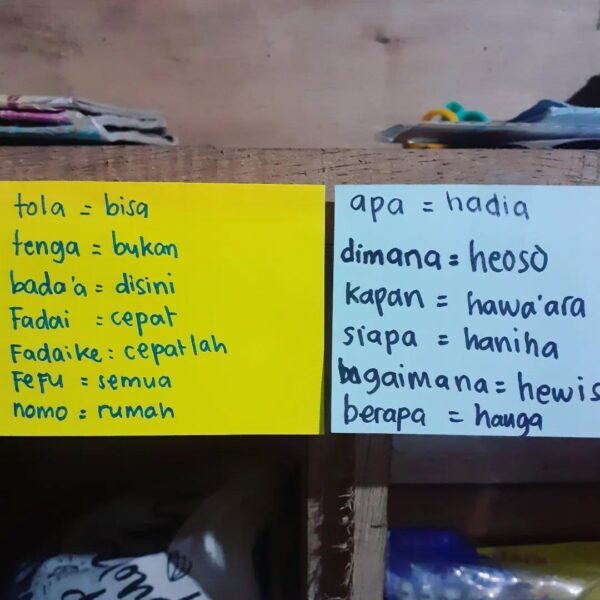 tola = bisa
tenga = bukan
bada'a = disini
Fadai : cepat
Fadaike : cepatlah
FeFu = semua
nomo = rumah
apa = hadia
dimana = heoso
kapan = hawa'ara
siapa = haniha
bagaimana = hewis
berapa = hauga